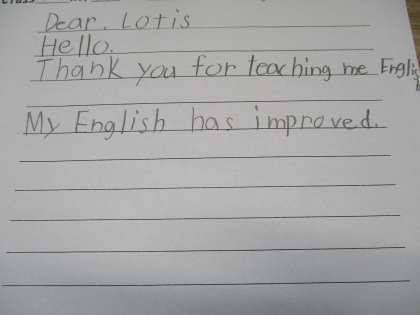 Dear. Lotis
Hello.
Thank you for teaching me English
My English has improved.